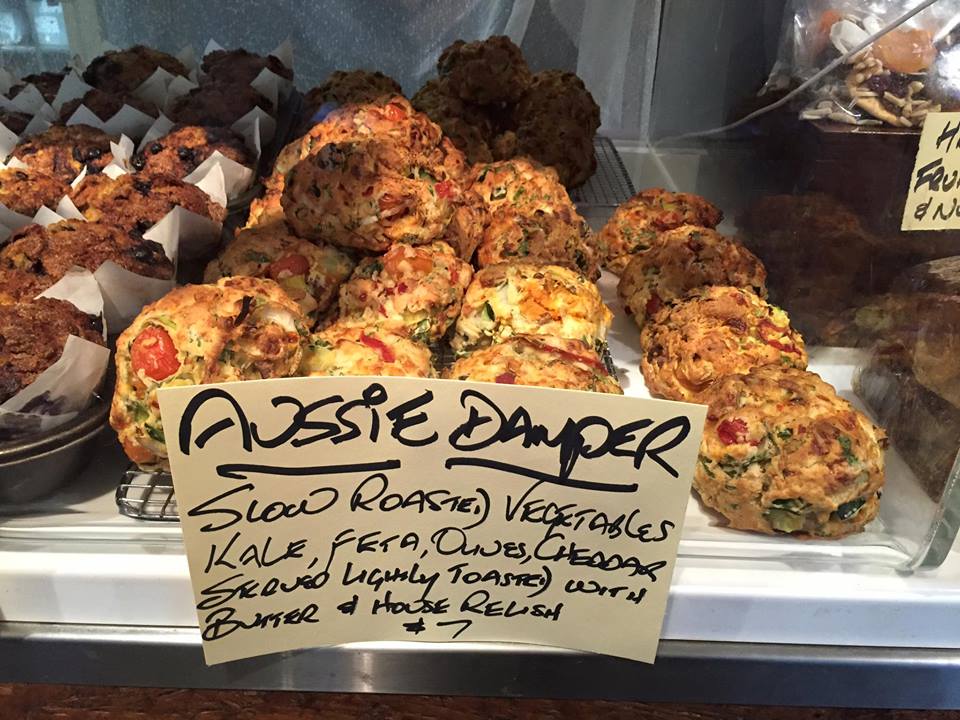 AUSSIE DAMPER
SLOW ROASTED VEGETABLES
KALE, FETA, OLIVES, CHEDDAR
SERVED LIGHTLY TOASTED WITH
BUTTER & HOUSE RELISH
$7
FRU
& NU